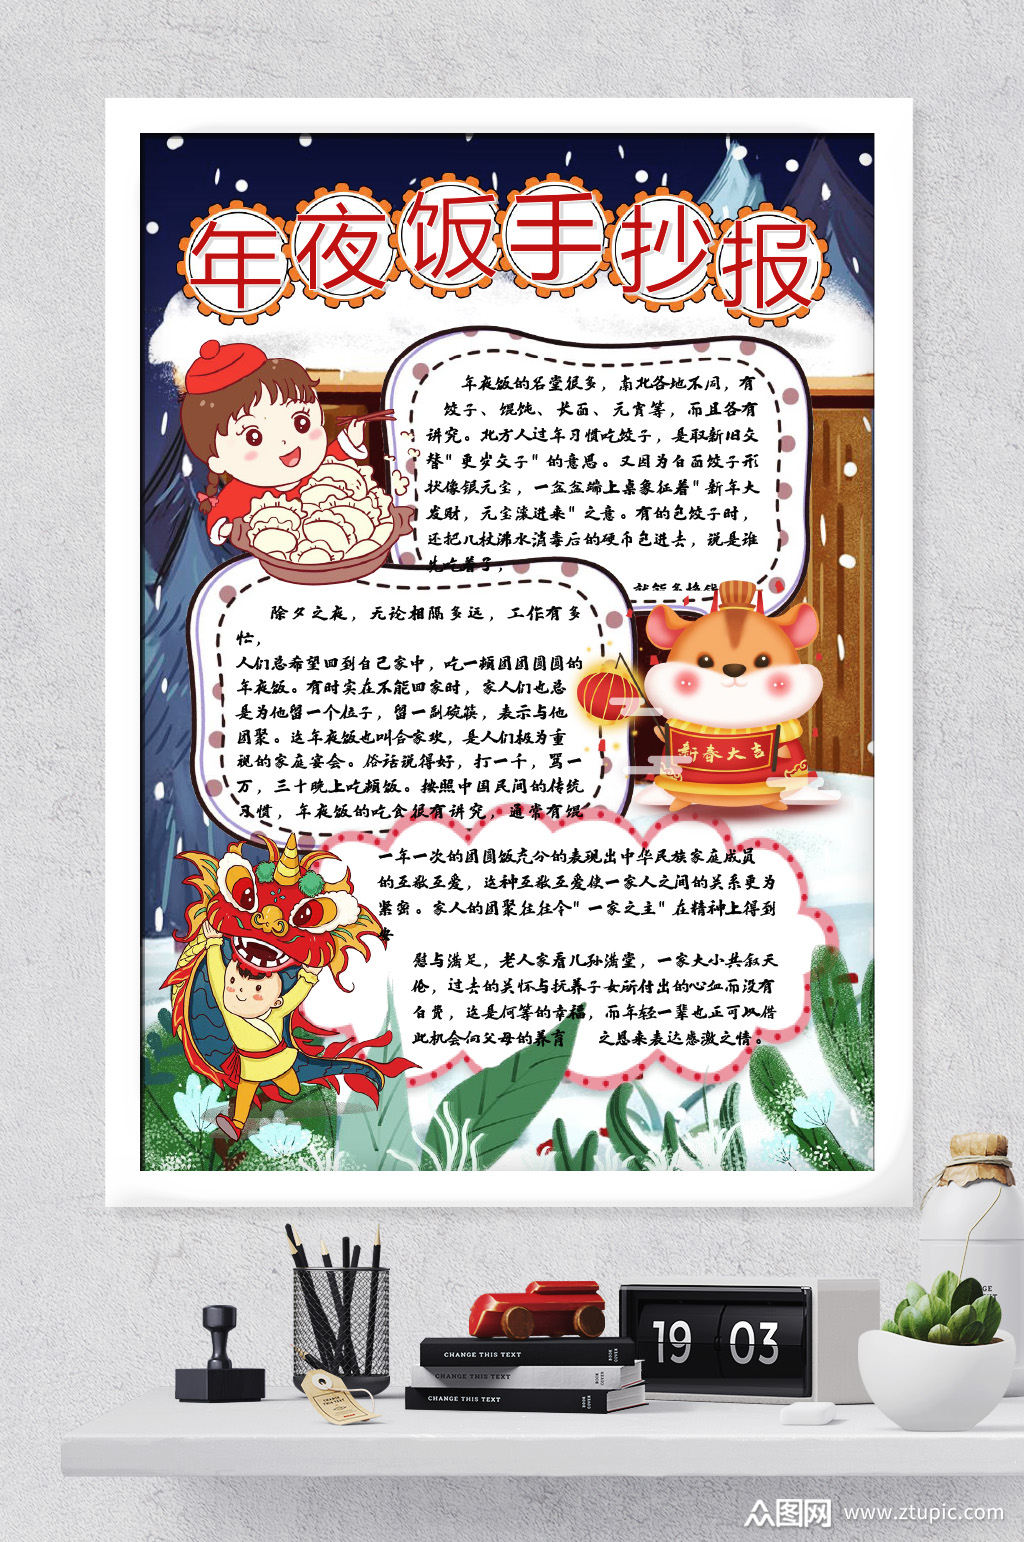 年夜饭手抄报
年夜饭的名堂很多，南北各地不同，有
饺子、馄饨、长面、元宵等，而且各有
讲究。北方人过年习惯吃饺子，是取新旧交
替"更岁交子"的意思。又因为白面饺子形
状像银元宝，一盆盆端上桌象征着"新年大
发财，元宝滚进来"之意。有的包饺子时，
还把几枚沸水消毒后的硬币包进去，说是谁
先吃着了，
就能多挣钱
除夕之夜，无论相隔多远，工作有多
忙，
人们总希望回到自己家中，吃一顿团团圆圆的
年夜饭。有时实在不能回家时，家人们也总
是为他留一个位子，留一副碗筷，表示与他
团聚。这年夜饭也叫合家欢，是人们极为重
视的家庭宴会。俗话说得好，打一千，骂一
万，三十晚上吃顿饭。按照中国民间的传统
习惯，年夜饭的吃食很有讲究，通常有馄
新春大吉
一年一次的团圆饭充分的表现出中华民族家庭成员
的互敬互爱，这种互敬互爱使一家人之间的关系更为
紧密。家人的团聚往往令"一家之主"在精神上得到
安
慰与满足，老人家看儿孙满堂，一家大小共叙天
伦，过去的关怀与抚养子女所付出的心血而没有
白费，这是何等的幸福，而年轻一辈也正可以借
此机会向父母的养育 之恩来表达感激之情。
19 03
CHANGE THIS TEXT
BOOK COVER
CHANGE THIS TEXT
BOOK COVER
CHANGE THIS TEXT
BOOK COVER
CHANGE
THIS TEXT
众图网 www.ztupic.com